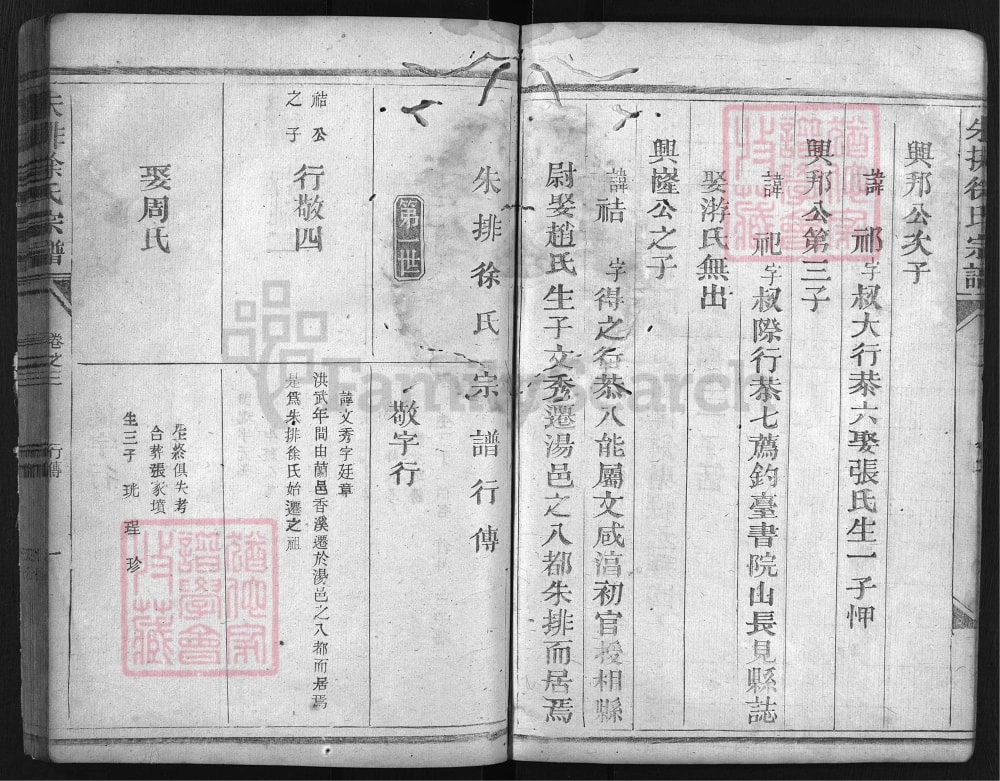 朱排徐氏宗譜
興邦公次子
諱祁字叔大行恭六娶張氏生一子忰
興邦公第三子
諱祀字叔際行恭七薦釣臺書院山長見縣誌
娶游氏無出
興隆公之子
諱祮字得之行恭八能屬文咸淳初官授相縣
尉娶趙氏生子文秀遷湯邑之八都朱排而居焉
朱排徐氏宗譜行傳
第一世
敬字行
祮公之子
行敬四
諱文秀字廷章
洪武年間由蘭邑香溪遷於湯邑之八都而居焉
是爲朱排徐氏始遷之祖
娶周氏
生終俱失考
合葬張家墳
生三子 珖 珵 珍
朱排徐氏宗譜
卷之二
行傳
一
FamilySearch